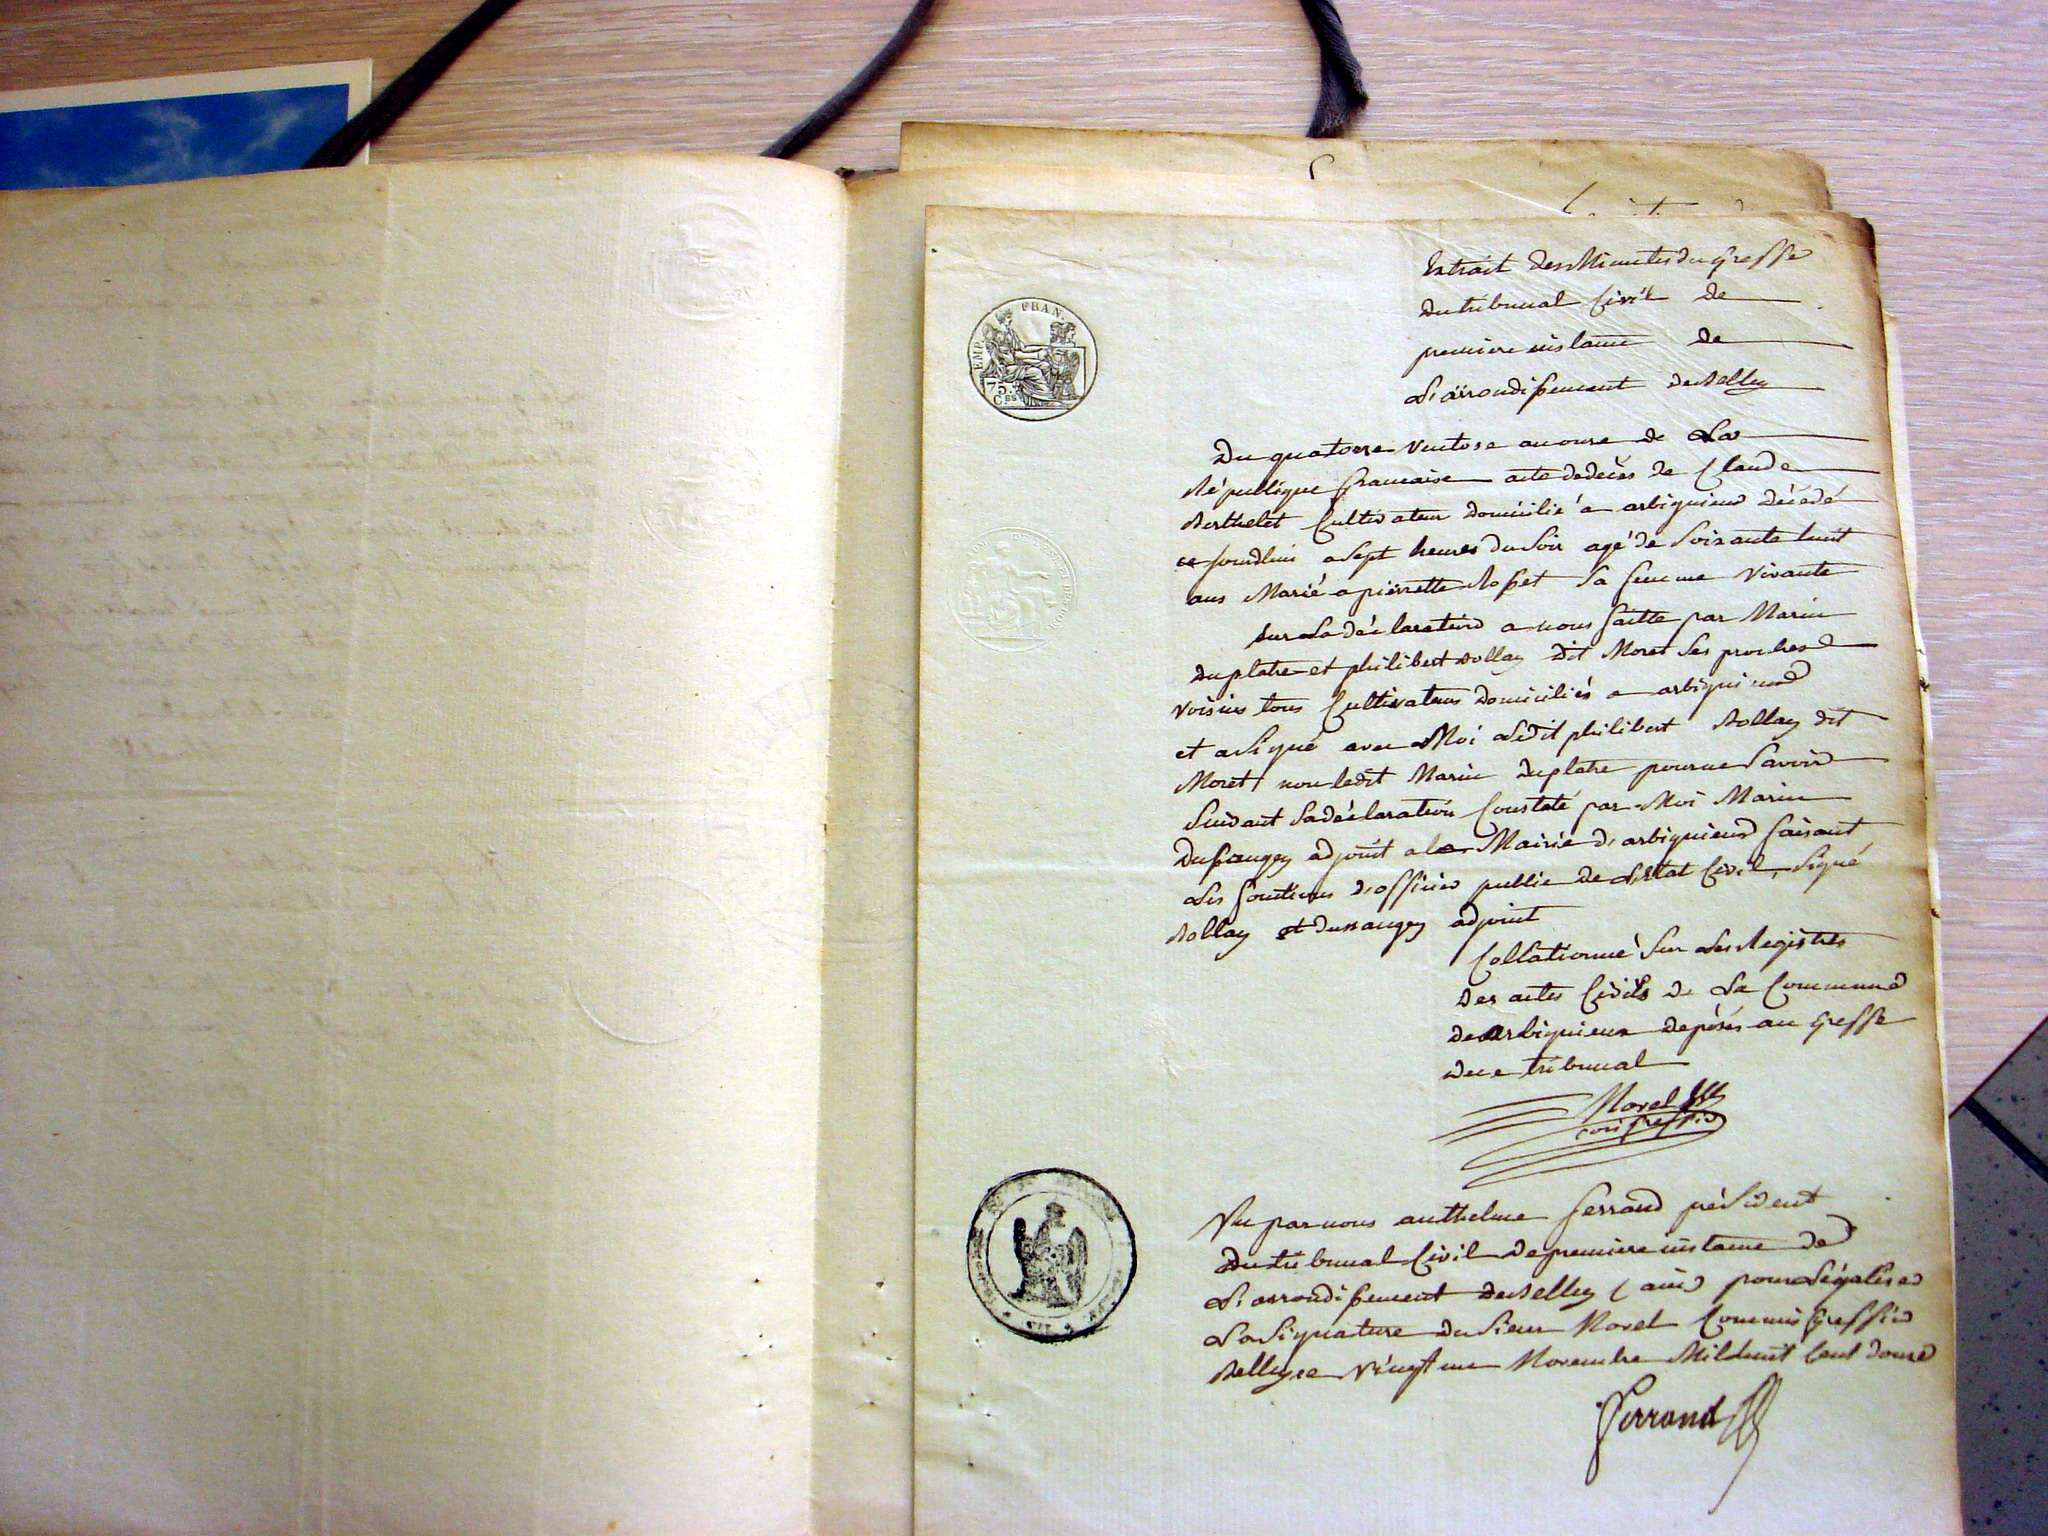 EMP. FRAN.
75.
Ces
Extrait des Minutes du Greffe
du tribunal Civil de
premiere instance de
L'arrondissement de Belley
Du quatorze Ventose an onze de La
République francaise acte de decès de Claude
Berthelet Cultivateur domicilié a arbignieu décédé
ce jourdhui a Sept heures du Soir agé de Soixante huit
ans Marié a pierrette Rosset Sa femme Vivante
Sur La déclaration a nous faitte par Marin
Duplatre et philibert Bollay dit Moret Ses proches
Voisins tous Cultivateurs domiciliés a arbignieu
et a Signé avec Moi Ledit philibert Bollay dit
Moret non ledit Marin Duplatre pour ne Savoir
Suivant Sa déclaration Constaté par Moi Marin
Dussaugey adjoint a la Mairie d'arbignieu faisant
Les fonctions d'officier public de L'Etat Civil, Signé
Bollay et Dussaugey adjoint
Collationné Sur Les Registres
des actes Civils de La Commune
de arbignieu deposés au Greffe
de ce tribunal
Morel
Com Greffier
Vu par nous anthelme ferrand président
du tribunal Civil de premiere instance de
L'arrondissement de Belley (ain) pour Légaliser
La Signature du Sieur Morel Commis Greffier
Belley ce Vingt un Novembre Mil huit Cent douze
ferrand